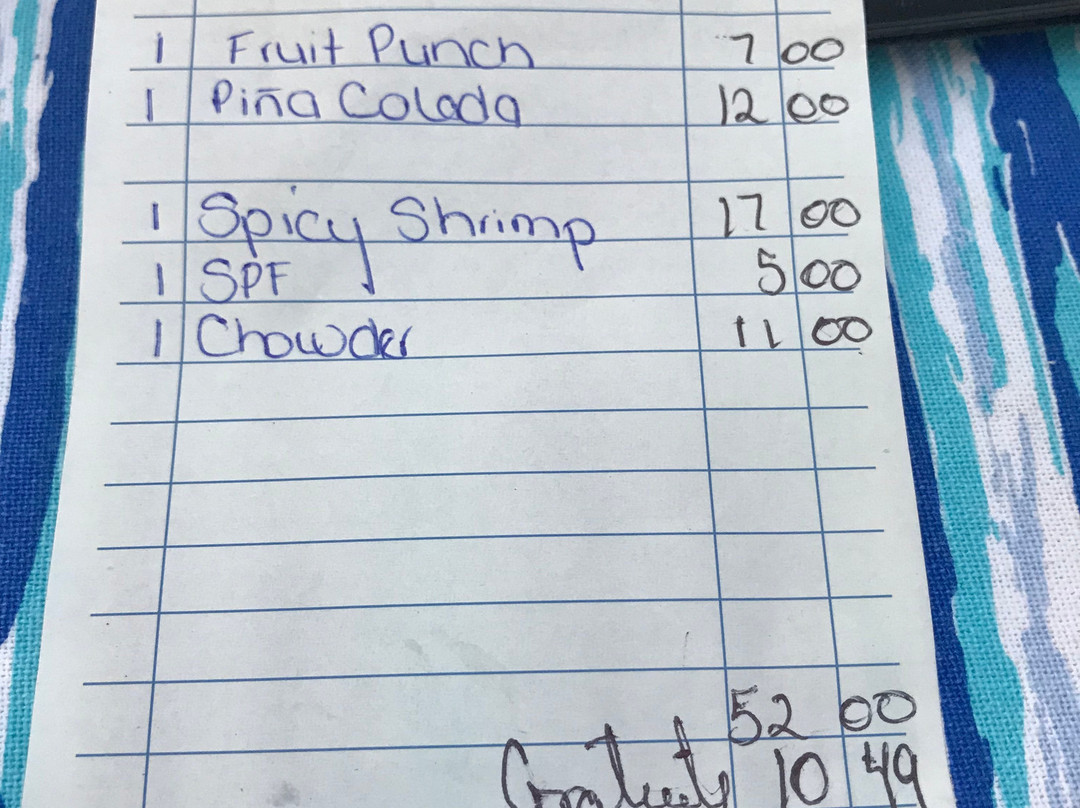 1 Fruit Punch 7 00
1 Piña Colada 12 00
1 Spicy Shrimp 17 00
1 SPF 5 00
1 Chowder 11 00
52 00
10 49